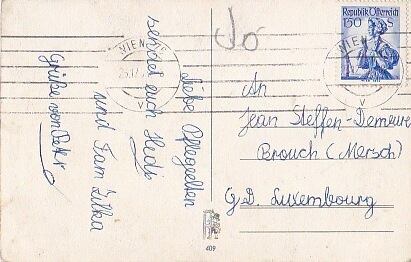 Liebe Pflegeeltern
sendet euch Hedi
und Fam. Zilka
Grüße von Peter
Jo
WIEN
WIEN
V
V
Republik Österreich
1.50 S
An
Jean Steffen-Demeure
Brouch (Mersch)
G.D. Luxembourg
409